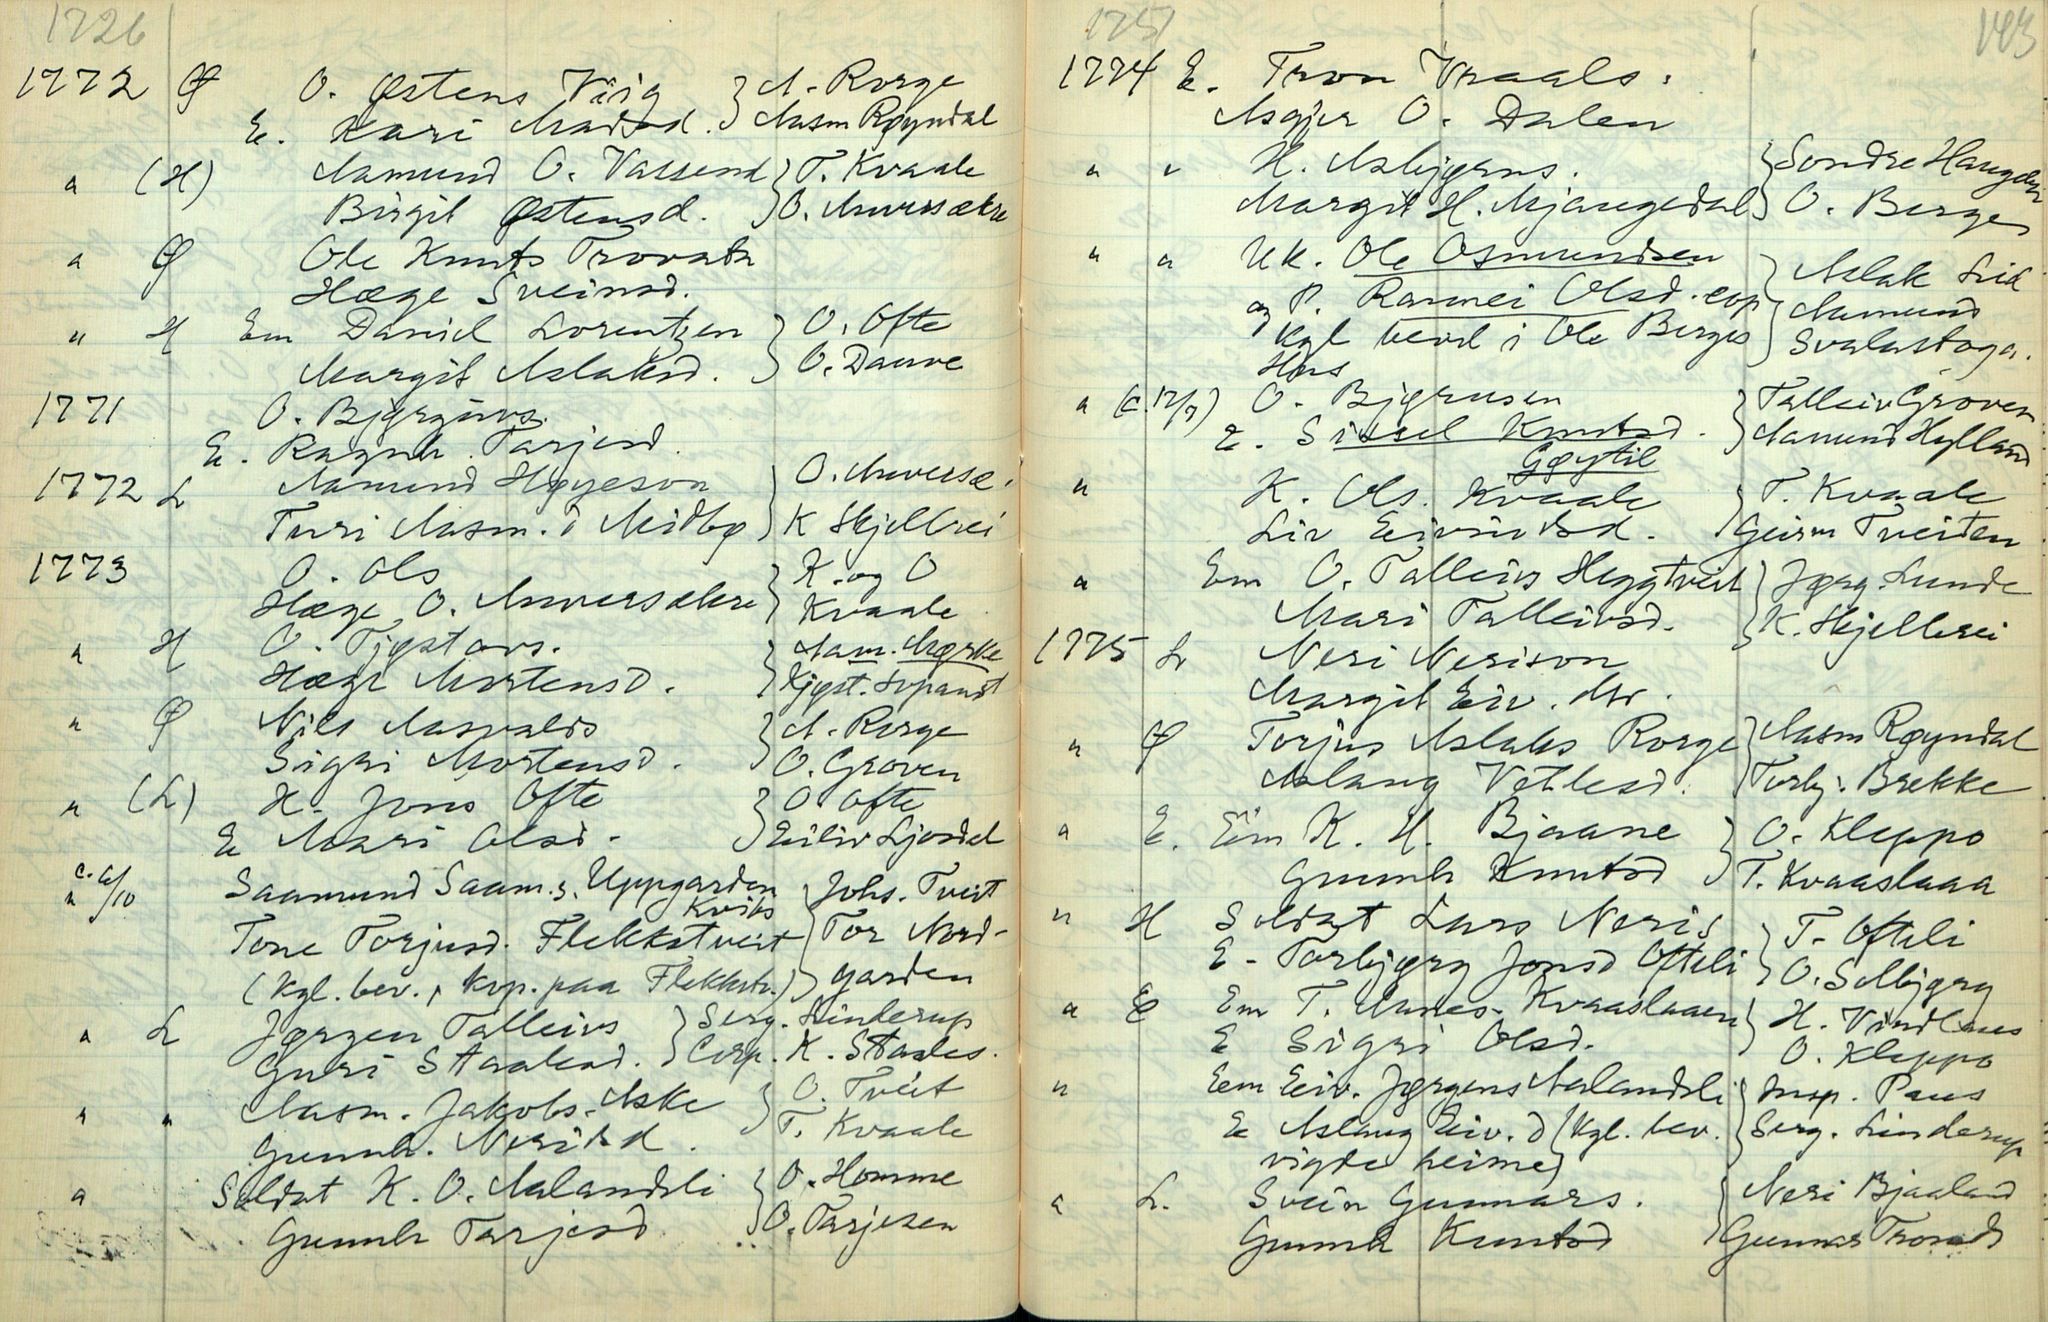 1726
1772 Ø O. Østens Viig } A. Rorge
E. Kari Madsd. } Aasm Røyndal
" (H) Aamund O. Vassend } T. Kvaale
Birgit Østensd. } O. Anversækre
" Ø Ole Knuts Trovatn
Hæge Sveinsd.
" H Em Daniel Lorentzen } O. Ofte
Margit Aslaksd. } O. Dauve
1771 O. Bjørguvs.
E. Ragnh. Tarjesd.
1772 L Aamund Høyeson } O. Anversæ.
Turi Aasm. d Midbø } K Skjelbrei
1773 O. Ols } K. og O
Hæge O. Anversækre } Kvaale
" H O. Tjøstovs. } Aam. Mørke
Hæge Mortensd. } Kjøst. Lopanst
" Ø Nils Aasvalds } A. Rorge
Sigri Mortensd. } O. Groven
" (L) H. Jons Ofte } O Ofte
E Mari Olsd. } Eiliv Ljosdal
" c. 6/10 Saamund Saam.s. Uppgarden } Johs. Tveit
Kvits
Tone Torjusd. Flekkstveit } Tor Nord-
(Kgl. bev., kop. paa Flekkstv.) } garden
" L Jørgen Talleivs } Serg. Linderup
Guri Staalesd. } Corp. K. Staales.
" " Aasm. Jakobs. Aske } O. Tveit
Gunnh. Nerisd. } T. Kvaale
" Soldat K. O. Aalandsli } O. Homme
Gunnh Tarjesd } O. Tarjesen
1751
143
1774 E. Tron Vraals.
Asgjer O. Dalen
" " H. Asbjørns. } Sondre Haugden
Margit H. Mjaugedal } O. Berge
" " Uk. Ole Osmundsen } Aslak Lid
og P. Rannei Olsd. cop } Aamund
Kgl bevil i Ole Berges } Svalastoga.
Hus
" (c. 12/7) O. Bjørnsen } Talleiv Groven
E. Sissel Knutsd. } Aamund Hylland
Gøytil
" K. Ols. Kvaale } T. Kvaale
Liv Eivindsd. } Geirm Tveiten
" Em O. Talleivs Heggtveit } Jørg. Lunde
Mari Talleivsd. } K. Skjelbrei
1775 L Neri Nerison
Margit Eiv. dtr.
" Ø Torjus Aslaks Rorge } Aasm Røyndal
Aslaug Vetlesd. } Torbj. Brekke
" E. Em K. H. Bjaane } O. Kleppo
Gunnh Knutsd } T. Kvaaslaaa
" H Soldat Lars Neris } T. Ofteli
E. Torbjørg Jonsd Ofteli } O. Solbjørg
" E Em T. Aanes. Kvaaslaaen } H. Vindlaus
E Sigri Olsd. } O. Kleppo
" Em Eiv. Jørgens Aalandsli } Insp. Paus
E Aslaug Eiv. d (Kgl. bev. } Serg. Linderup
vigde heime)
" L. Svein Gunnars. } Neri Bjaaland
Gunnh Knutsd } Gunnar Tronds